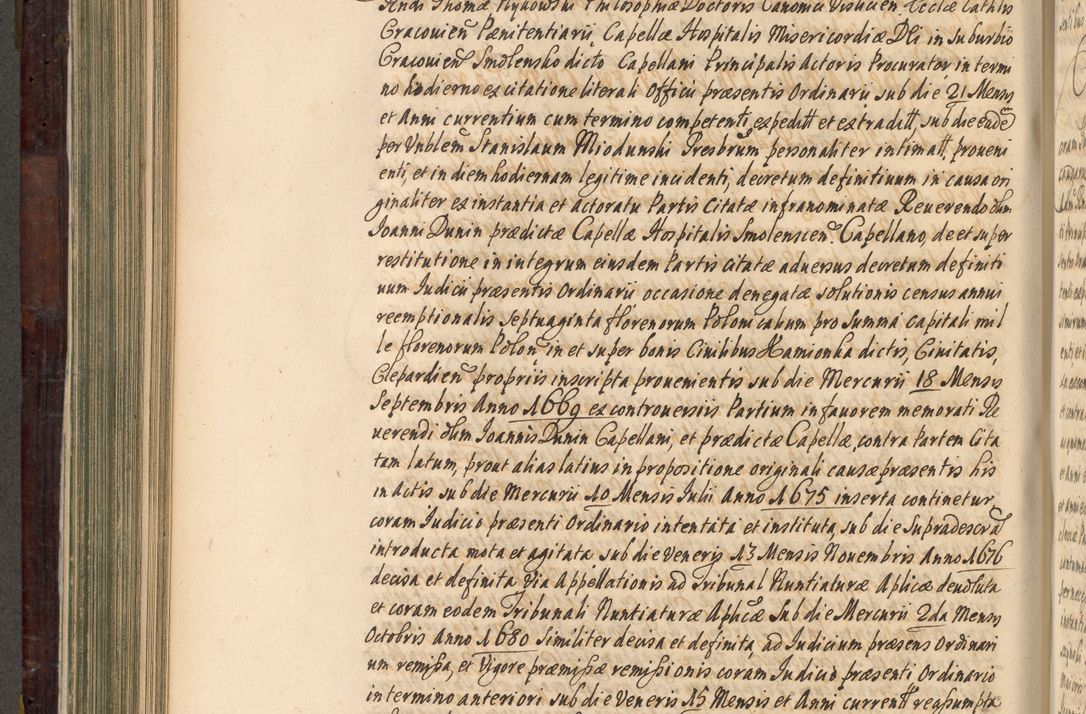 Andr Thomæ Rykowski Philosophiæ Doctoris Canonici Visliciẽn Ecclæ Cathlis
Cracovieñ Pænitentiarii, Capellæ Hospitalis Misericordiæ Dei in suburbio
Cracovieñ Smolensko dicto Capellani Principalis Actoris Procurator, in termi
no hodierno ex citatione literali Officii præsentis Ordinarii sub die 21 Mensis
et Anni currentium cum termino competenti expeditt et extraditt, sub die eadẽ
per Vnblem Stanislaum Miodunski Presbrum personaliter intimatt. proveni
enti, et in diem hodiernam legitime incidenti, decretum definitiuum in causa ori
ginaliter ex instantia et actoratu Partis Citatæ infranominatæ Reuerendo dum
Joanni Dunin prædictæ Capellæ Hospitalis Smolenscen. Capellano, de et super
restitutione in integrum eiusdem Partis citatæ aduersus decretum definiti
uum Iudicii præsentis Ordinarii occasione denegatæ solutionis census annui
reemptionalis septuaginta florenorum Polonicalium pro Summa capitali mil
le florenorum Polon in et super bonis Ciuilibus Kamionka dictis, Ciuitatis,
Clepardieñ propriis inscripta prouenientis sub die Mercurii 18 Mensis
Septembris Anno 1669 ex controuersiis Partium in fauorem memorati Re
uerendi dum Joannis Dunin Capellani, et prædictæ Capellæ, contra Partem Cita
tam latum, prout alias latius in propositione originali causæ præsentis his
in Actis sub die Mercurii 10 Mensis Julii Anno 1675 inserta continetur
coram Judicio præsenti Ordinario intentata et instituta, sub die Supradescrã
introducta mota et agitata, sub die Veneris 13 Mensis Nouembris Anno 1676
decisa et definita, Via Appellationis ad Tribunal Nuntiaturæ Aplicæ deuoluta
et coram eodem Tribunali Nuntiaturæ Aplicæ Sub die Mercurii 2da Mensis
Octobris Anno 1680 Similiter decisa et definita, ad Judicium præsens Ordinari
um remissa, et Vigore præmissæ remissionis coram Judicio præsenti Ordinario
in termino anteriori sub die Veneris 15 Mensis et Anni currentt reassumpta